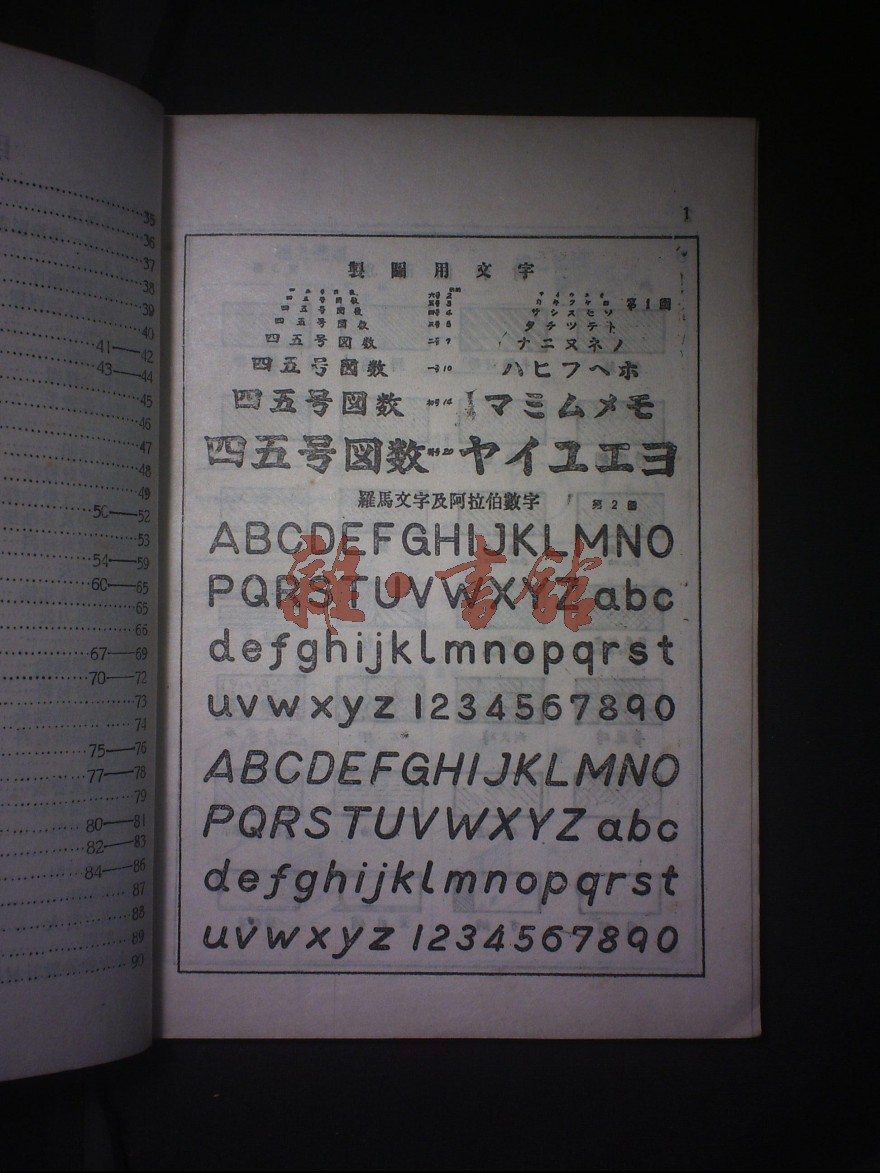 35
36
37
38
39
40
41——42
43——44
45
46
47
48
49
50——52
53
54——59
60——65
65
66
67——69
70——72
73
74
75——76
77——78
79
80——81
82——83
84——86
87
88
89
90
1
製圖用文字
四五号図数 第1圖
四五号図数 サシスセソ
四五号図数 タチツテト
四五号図数 二号 ナニヌネノ
四五号図数 一号10 ハヒフヘホ
四五号図数 マミムメモ
四五号図数 ヤイユエヨ
羅馬文字及阿拉伯數字 第2圖
ABCDEFGHIJKLMNO
PQRSTUVWXYZabc
defghijklmnopqrst
uvwxyz 1234567890
ABCDEFGHIJKLMNO
PQRSTUVWXYZabc
defghijklmnopqrst
uvwxyz 1234567890
雜·書館